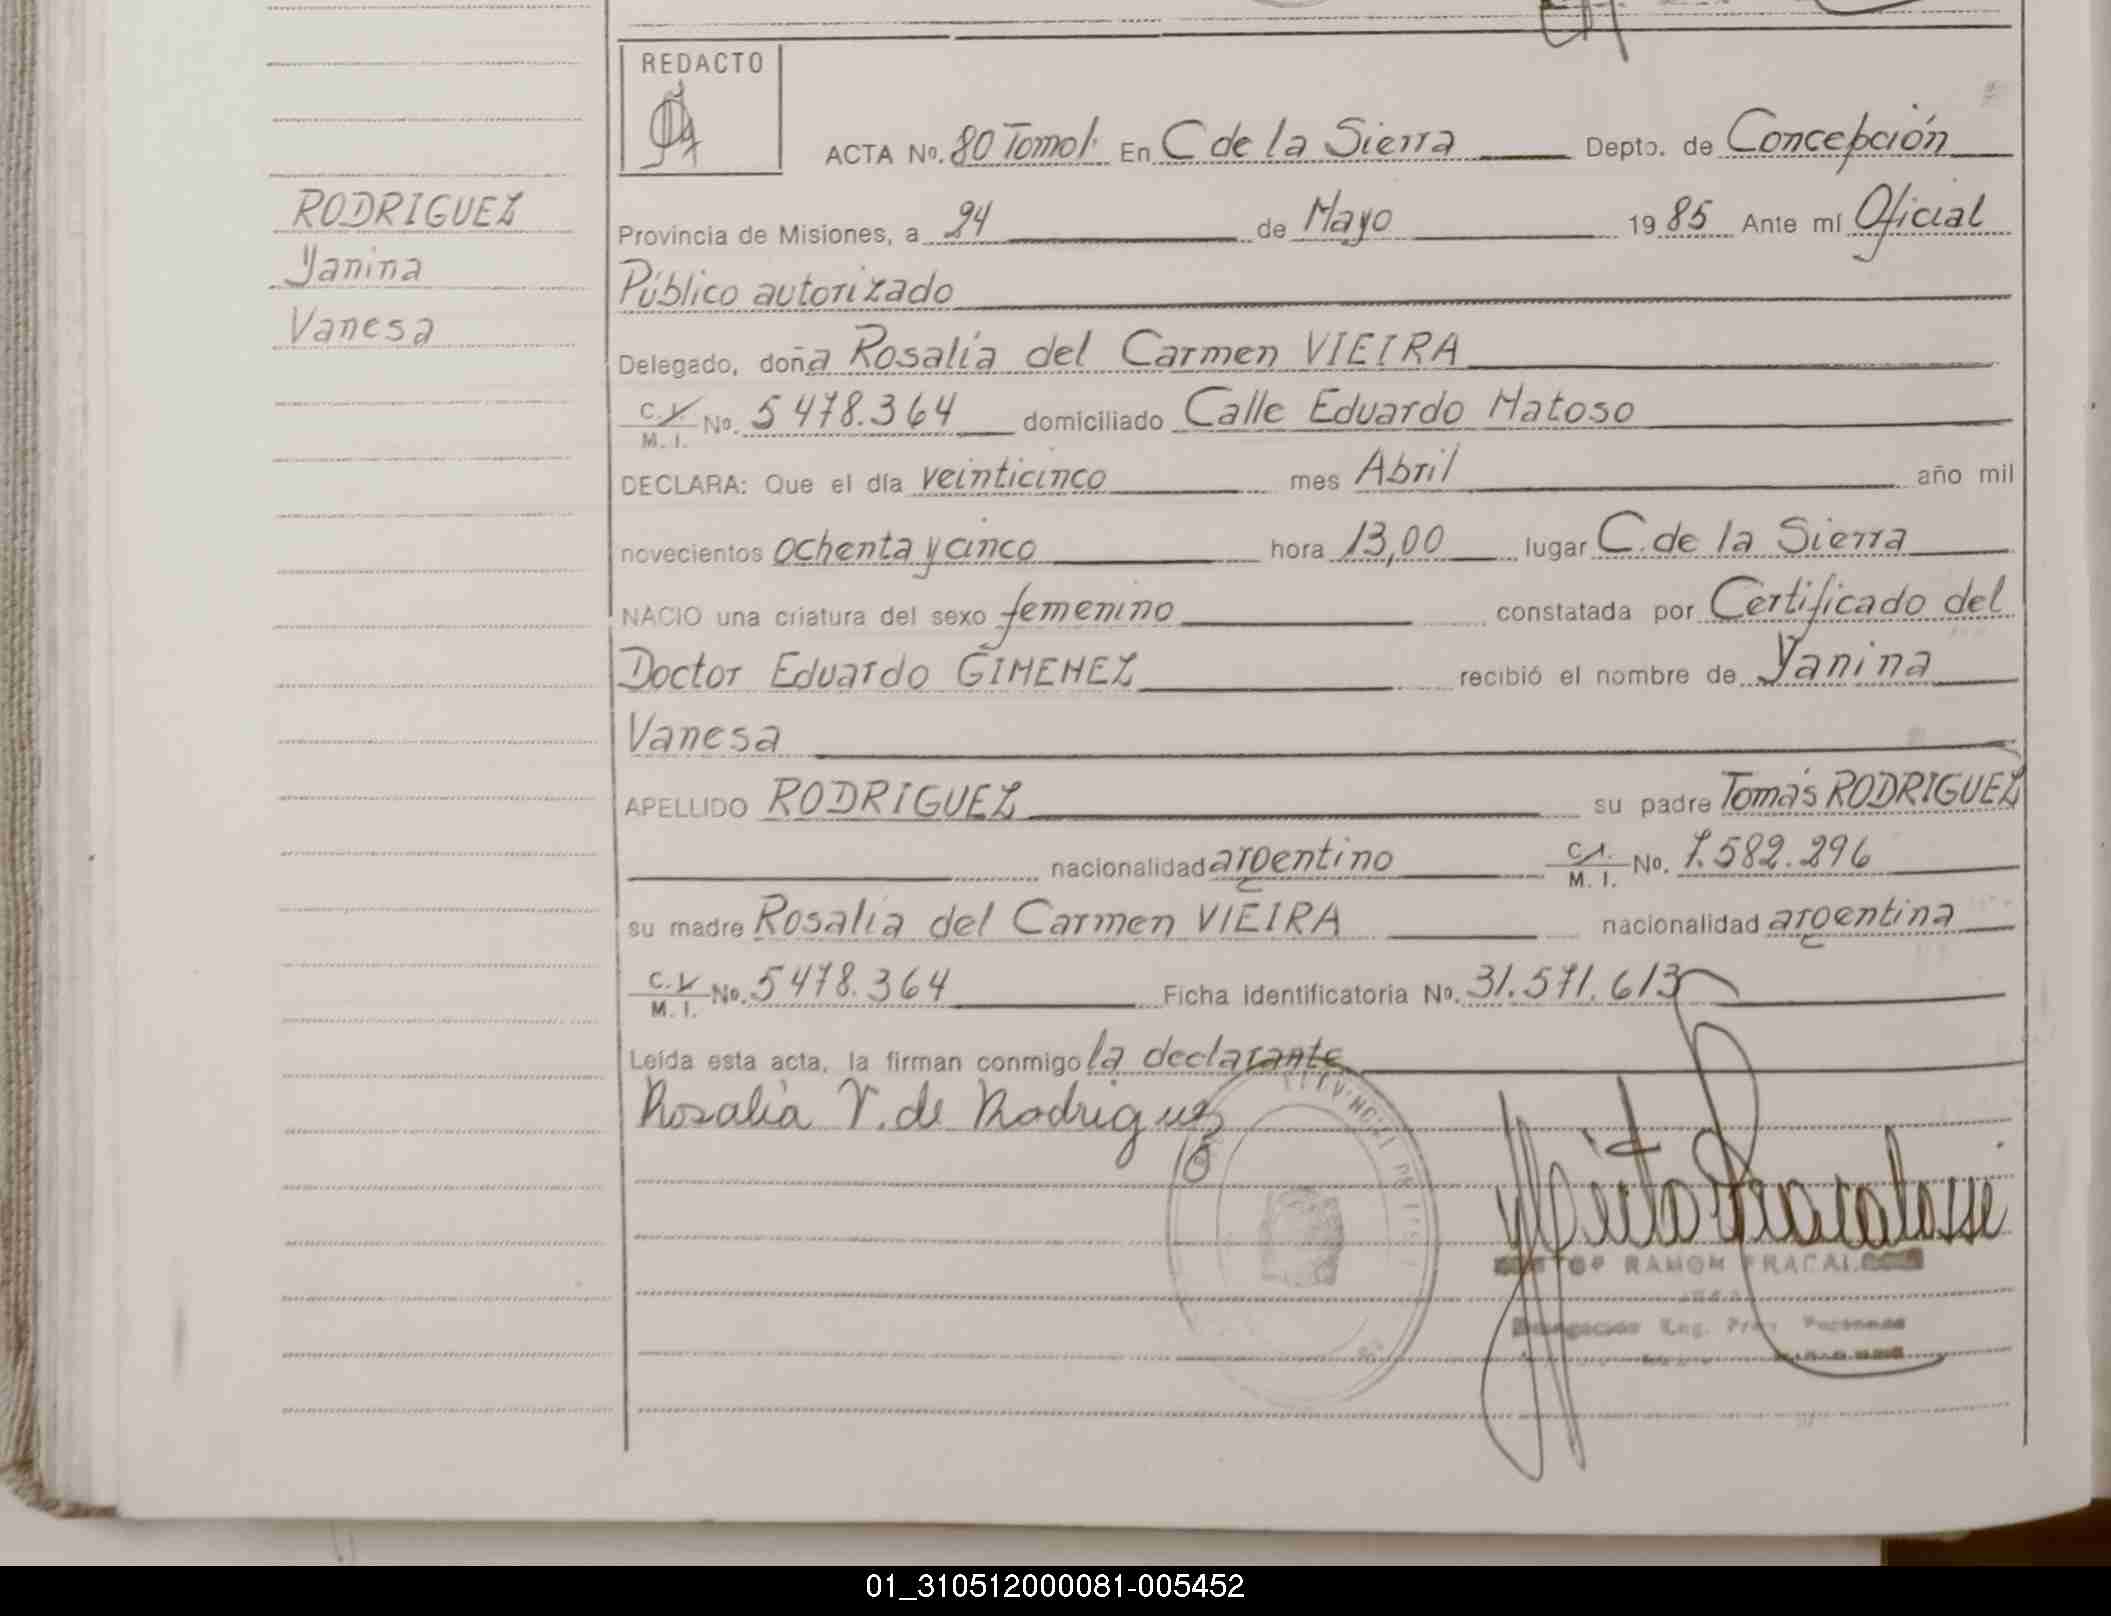 REDACTO
ACTA No. 80 Tomo I. En C de la Sierra Depto. de Concepción
RODRIGUEZ
Yanina
Vanesa
Provincia de Misiones, a 24 de Mayo 1985 Ante mí Oficial
Público autorizado
Delegado, doña Rosalía del Carmen VIEIRA
C.I. M. I. No. 5 478.364 domiciliado Calle Eduardo Matoso
DECLARA: Que el día veinticinco mes Abril año mil
novecientos ochenta y cinco hora 13,00 lugar C. de la Sierra
NACIO una criatura del sexo femenino constatada por Certificado del
Doctor Eduardo GIMENEZ recibió el nombre de Yanina
Vanesa
APELLIDO RODRIGUEZ su padre Tomás RODRIGUEZ
nacionalidad argentino C.I. M. I. No. 7.582.296
su madre Rosalía del Carmen VIEIRA nacionalidad argentina
C.I. M. I. No. 5478.364 Ficha Identificatoria No. 31.571.613
Leída esta acta, la firman conmigo la declarante
Rosalía V. de Rodriguez
RAMON
01_310512000081-005452